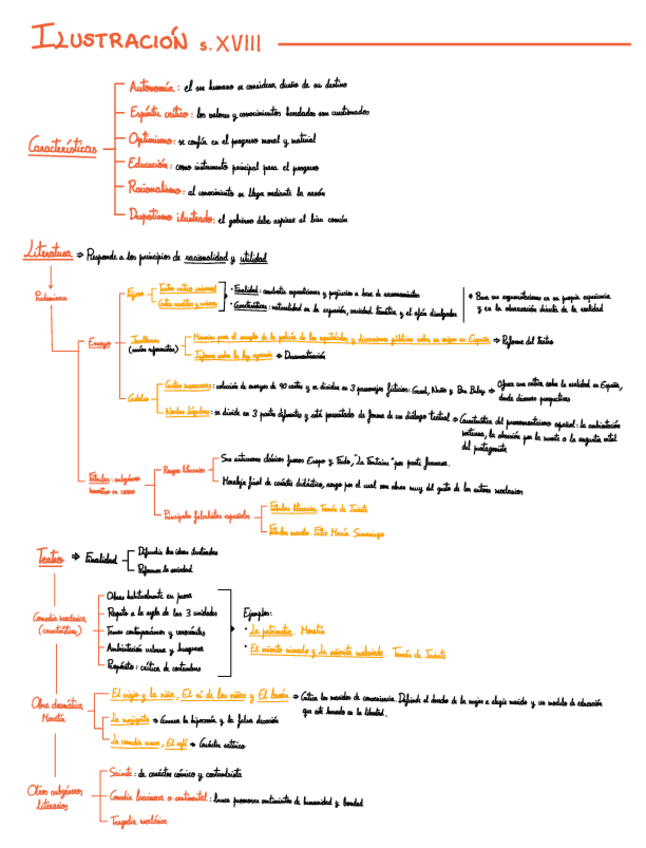 ILUSTRACIÓN s.XVIII
Características
Autonomía: el ser humano se considera dueño de su destino
Espíritu crítico: los valores y conocimientos heredados son cuestionados
Optimismo: se confía en el progreso moral y material
Educación: como instrumento principal para el progreso
Racionalismo: al conocimiento se llega mediante la razón
Despotismo ilustrado: el gobierno debe aspirar al bien común
Literatura ⇒ Responde a los principios de racionalidad y utilidad
Predominan
Ensayo
Feijoo
Teatro crítico universal
Cartas eruditas y curiosas
• Finalidad: combatir supersticiones y prejuicios a base de razonamientos
• Características: naturalidad en la expresión, variedad temática y el afán divulgador
• Basa sus argumentaciones en su propia experiencia
y en la observación directa de la realidad
Jovellanos
(varios reformistas)
Memoria para el arreglo de la policía de los espectáculos y diversiones públicas sobre su origen en España ⇒ Reforma del Teatro
Informe sobre la ley agraria ⇒ Desamortización
Cadalso
Cartas marruecas: colección de ensayos de 90 cartas y se dividen en 3 personajes ficticios: Gazel, Nuño y Ben Beley ⇒ Ofrece una crítica sobre la realidad en España,
desde diversas perspectivas
Noches lúgubres: se divide en 3 partes diferentes y está presentado de forma de un diálogo teatral ⇒ Características del prerromanticismo español: la ambientación
nocturna, la obsesión por la muerte o la angustia vital
del protagonista
Fábulas: subgénero
narrativo en verso
Rasgos literarios
Sus autores clásicos fueron Esopo y Fedro, "La Fontaine" por parte francesa.
Moraleja final de carácter didáctico, rasgo por el cual son obras muy del gusto de los autores neoclásicos
Principales fabulistas españoles
Fábulas literarias. Tomás de Iriarte
Fábulas morales. Félix María Samaniego
Teatro ⇒ Finalidad
Difundir las ideas ilustradas
Reformar la sociedad
Comedia neoclásica
(características)
Obras habitualmente en prosa
Respeto a la regla de las 3 unidades
Temas contemporáneos y verosímiles
Ambientación urbana y burguesa
Propósito: crítica de costumbres
Ejemplos:
• La petimetra. Moratín
• El señorito mimado y La señorita malcriada. Tomás de Iriarte
Obra dramática
Moratín
El viejo y la niña, El sí de las niñas y El barón ⇒ Critica los maridos de conveniencia. Defiende el derecho de la mujer a elegir marido y un modelo de educación
que esté basado en la libertad.
La mojigata ⇒ Censura la hipocresía y la falsa devoción
La comedia nueva, El café ⇒ Carácter satírico
Otros subgéneros
literarios
Sainete: de carácter cómico y costumbrista
Comedia lacrimosa o sentimental: busca promover sentimientos de humanidad y bondad
Tragedia neoclásica